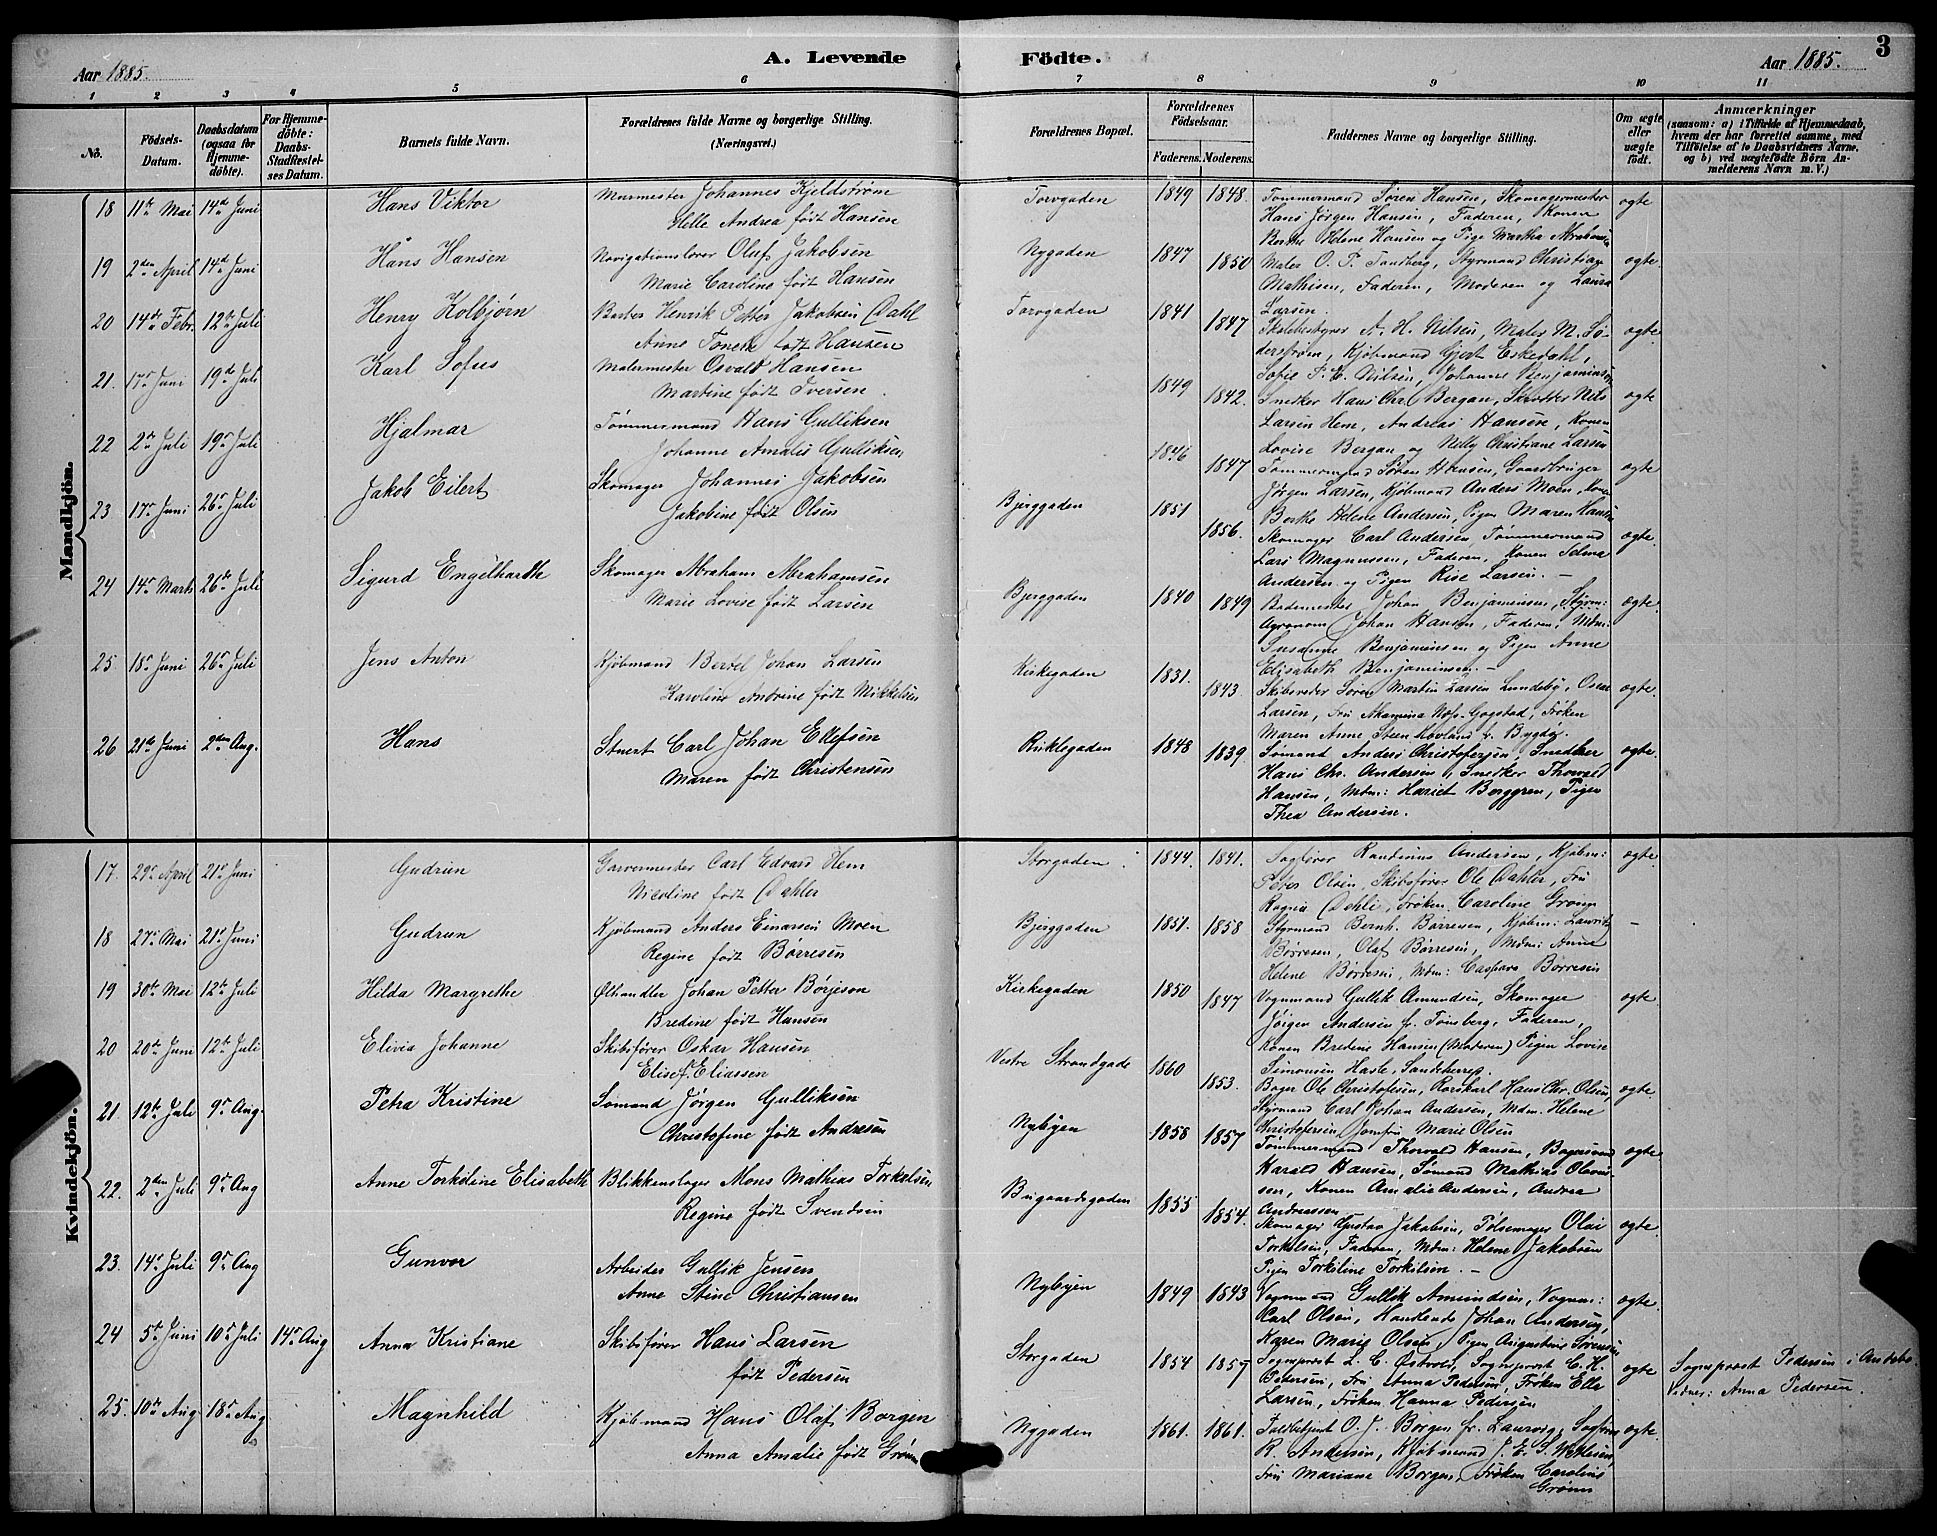 A. Levende Födte. 3
Aar 1885. Aar 1885.
1 2 3 4 5 6 7 8 9 10 11
No.
Födsels-Datum.
Daabsdatum (ogsaa för Hjemme-döbte).
For Hjemme-döbte: Daabs-Stadfæstel-ses Datum.
Barnets fulde Navn.
Forældrenes fulde Navne og borgerlige Stilling. (Næringsvei.)
Forældrenes Bopæl.
Forældrenes Födselsaar.
Faderens. Moderens.
Faddernes Navne og borgerlige Stilling.
Om ægte eller uægte födt.
Anmærkninger
(saasom: a) i Tilfælde af Hjemmedaab, hvem der har forrettet samme, med Tilföielse af to Daabsvidners Navne, og b) ved uægtefödte Börn Anmelderens Navn m. V.)
Mandkjön.
18 11te Mai 14de Juni Hans Viktor Murmester Johannes Kjeldstrøm Torvgaden 1849 1848. Tømmermand Søren Hansen, Skomagermester ægte
Helle Andrea født Hansen Hans Jørgen Hansen, Faderen, Konen
Berthe Helene Hansen og Pige Martha
19 2den April 14de Juni Hans Hansen Navigationslærer Oluf Jakobsen Nygaden 1847 1850 Maler O. P. Sandberg, Styrmand Christian ægte.
Marie Caroline født Hansen Mathisen, Faderen, Moderen og Laura
Larsen.
20 14de Febr. 12te Juli Henry Kolbjørn Barber Henrik Petter Jakobsen Dahl Torvgaden 1841 1847 Skolebestyrer A. H. Nilsen, Maler M. Sø- ægte.
Anne født Hansen derstrøm, Kjøbmand Gjert Eskedahl,
Sofie Nilsen, Johanne Benjaminsen
21. 17de Juni 19de Juli Karl Sofus Malermester Osvald Hansen 1849 1842. Snedker Hans Chr. Bergan, Nils ægte
Martine født Iversen. Larsen Hem, Andreas Hansen, Konen
Lovise Bergan og Nelly Christiane Larsen
22 2den Juli 19de Juli Hjalmar Tømmermand Hans Gulliksen 1846 1847 Tømmermand Søren Hansen, Gaardbruger ægte
Johanne Amalie Gulliksen Jørgen Larsen, Kjøbmand Anders Moen, Konen
Berthe Helene Andersen, Pigen Maren
23 17de Juni 26de Juli Jakob Eilert Skomager Johannes Jakobsen Bjerggaden 1851 1856. Skomager Carl Andersen, Tømmermand ægte.
Jakobine født Olsen Lars Magnussen, Faderen, Konen Selma
Andersen og Pigen Rise Larsen. –
24 14de Marts 26de Juli Sigurd Engelhardth Skomager Abraham Abrahamsen Bjerggaden 1840 1849 Bademester Johan Benjaminsen, Styrm: ægte.
Marie Lovise født Larsen Agronom Johan Hansen, Faderen, Mdm:
Susanne Benjaminsen og Pigen Anne
Elisabeth Benjaminsen. –
25 18de Juni 26de Juli Jens Anton Kjøbmand Bertel Johan Larsen Kirkegaden 1831. 1843. Skibsreder Søren Martin Larsen Lundeby, Oscar ægte.
Karoline Andrine født Mikkelsen Larsen, Fru Næss Gogstad, Frøken
Maren Anne Steen Bygdø.
26 21de Juni 2den Aug. Hans Stuert Carl Johan Ellefsen Rinklegaden 1848 1839 Sømand Anders Christofersen, Snedker ægte.
Maren født Christensen Hans Chr. Andersen, Snedker Thorvald
Hansen, Mdm: Hariet Berggren, Pigen
Thea Andersen.
Kvindekjön.
17. 29de April 21de Juni Gudrun Garvermester Carl Edvard Hem Storgaden 1844. 1841. Sagfører Randinus Andersen, Kjøbm: ægte
Nicoline født Dahler Peter Olsen, Skibsfører Ole Dahler, Fru
Ragna Dehli, Frøken Caroline Grønn
18 27de Mai 21de Juni Gudrun Kjøbmand Anders Einarsen Moen Bjerggaden 1851. 1858 Styrmand Bernh. Børresen, Kjøbm: Lauritz –
Regine født Børresen Børresen, Olaf Børresen, Mdm: Anne
Helene Børresen, Mdm: Caspara Børresen
19 30te Mai 12te Juli Hilda Margrethe Ølhandler Johan Petter Børjeson Kirkegaden 1850 1847 Vognmand Gullik Amundsen, Skomager ægte
Bredine født Hansen Jørgen Andersen fr. Tønsberg, Faderen,
Konen Bredine Hansen (Moderen) Pigen Lovise
Simonsen Hasle, Sandeherred.
20 20de Juni 12te Juli Elivia Johanne Skibsfører Oskar Hansen Vestre Strandgade 1860 1853. Bager Ole Christofersen, Rorskarl Hans Chr. Olsen, ægte
Elise f. Eliassen Styrmand Carl Johan Andersen, Mdm. Helene
Christofersen, Jomfru Marie Olsen
21. 12te Juli 9de Aug. Petra Kristine Sømand Jørgen Gulliksen Nybyen 1858 1857 Tømmermand Thorvald Hansen, Bagersvend ægte.
Christofine født Andresen Harald Hansen, Sømand Mathias Olaves-
sen, Konen Amalie Andersen, Andrea
Andreassen
22. 2den Juli 9de Aug Anne Torkeline Elisabeth Blikkenslager Mons Mathias Torkelsen Bugaardsgaden 1855 1854. Skomager Gustav Jakobsen, Pølsemager Olai ægte
Regine født Svendsen Torkelsen, Faderen, Mdm: Helene Jakobsen
Pigen Torkeline Torkelsen. –
23. 14de Juli 9de Aug Gunvor Arbeider Gullik Jensen Nybyen 1849 1843 Vognmand Gullik Amundsen, Vognm: ægte.
Anne Stine Christiansen Carl Olsen, Handlende Johan Andersen,
Karen Marie Olsen, Pigen Augustine Sørensen
24 5te Juni 10de Juli 14de Aug Anna Kristiane Skibsfører Hans Larsen Storgaden 1854 1857 Sogneprest L. C. Østvold, Sogneprest C. H. ægte Sogneprest Pedersen i Andebo.
født Pedersen Pedersen, Fru Anna Pedersen, Frøken Elle Vidner: Anna Pedersen.
Larsen, Frøken Hanna Pedersen
25. 10de Aug 18de Aug Magnhild Kjøbmand Hans Olaf Borgen Nygaden 1861. 1861. Toldbetjent O. J. Borgen fr. Laurvig, Sagfører ægte.
Anna Amalie født Grønn R. Andersen, Kjøbmand J. E. S. Wettesen,
Fru Mariane Borgen, Frøken Caroline
Grønn